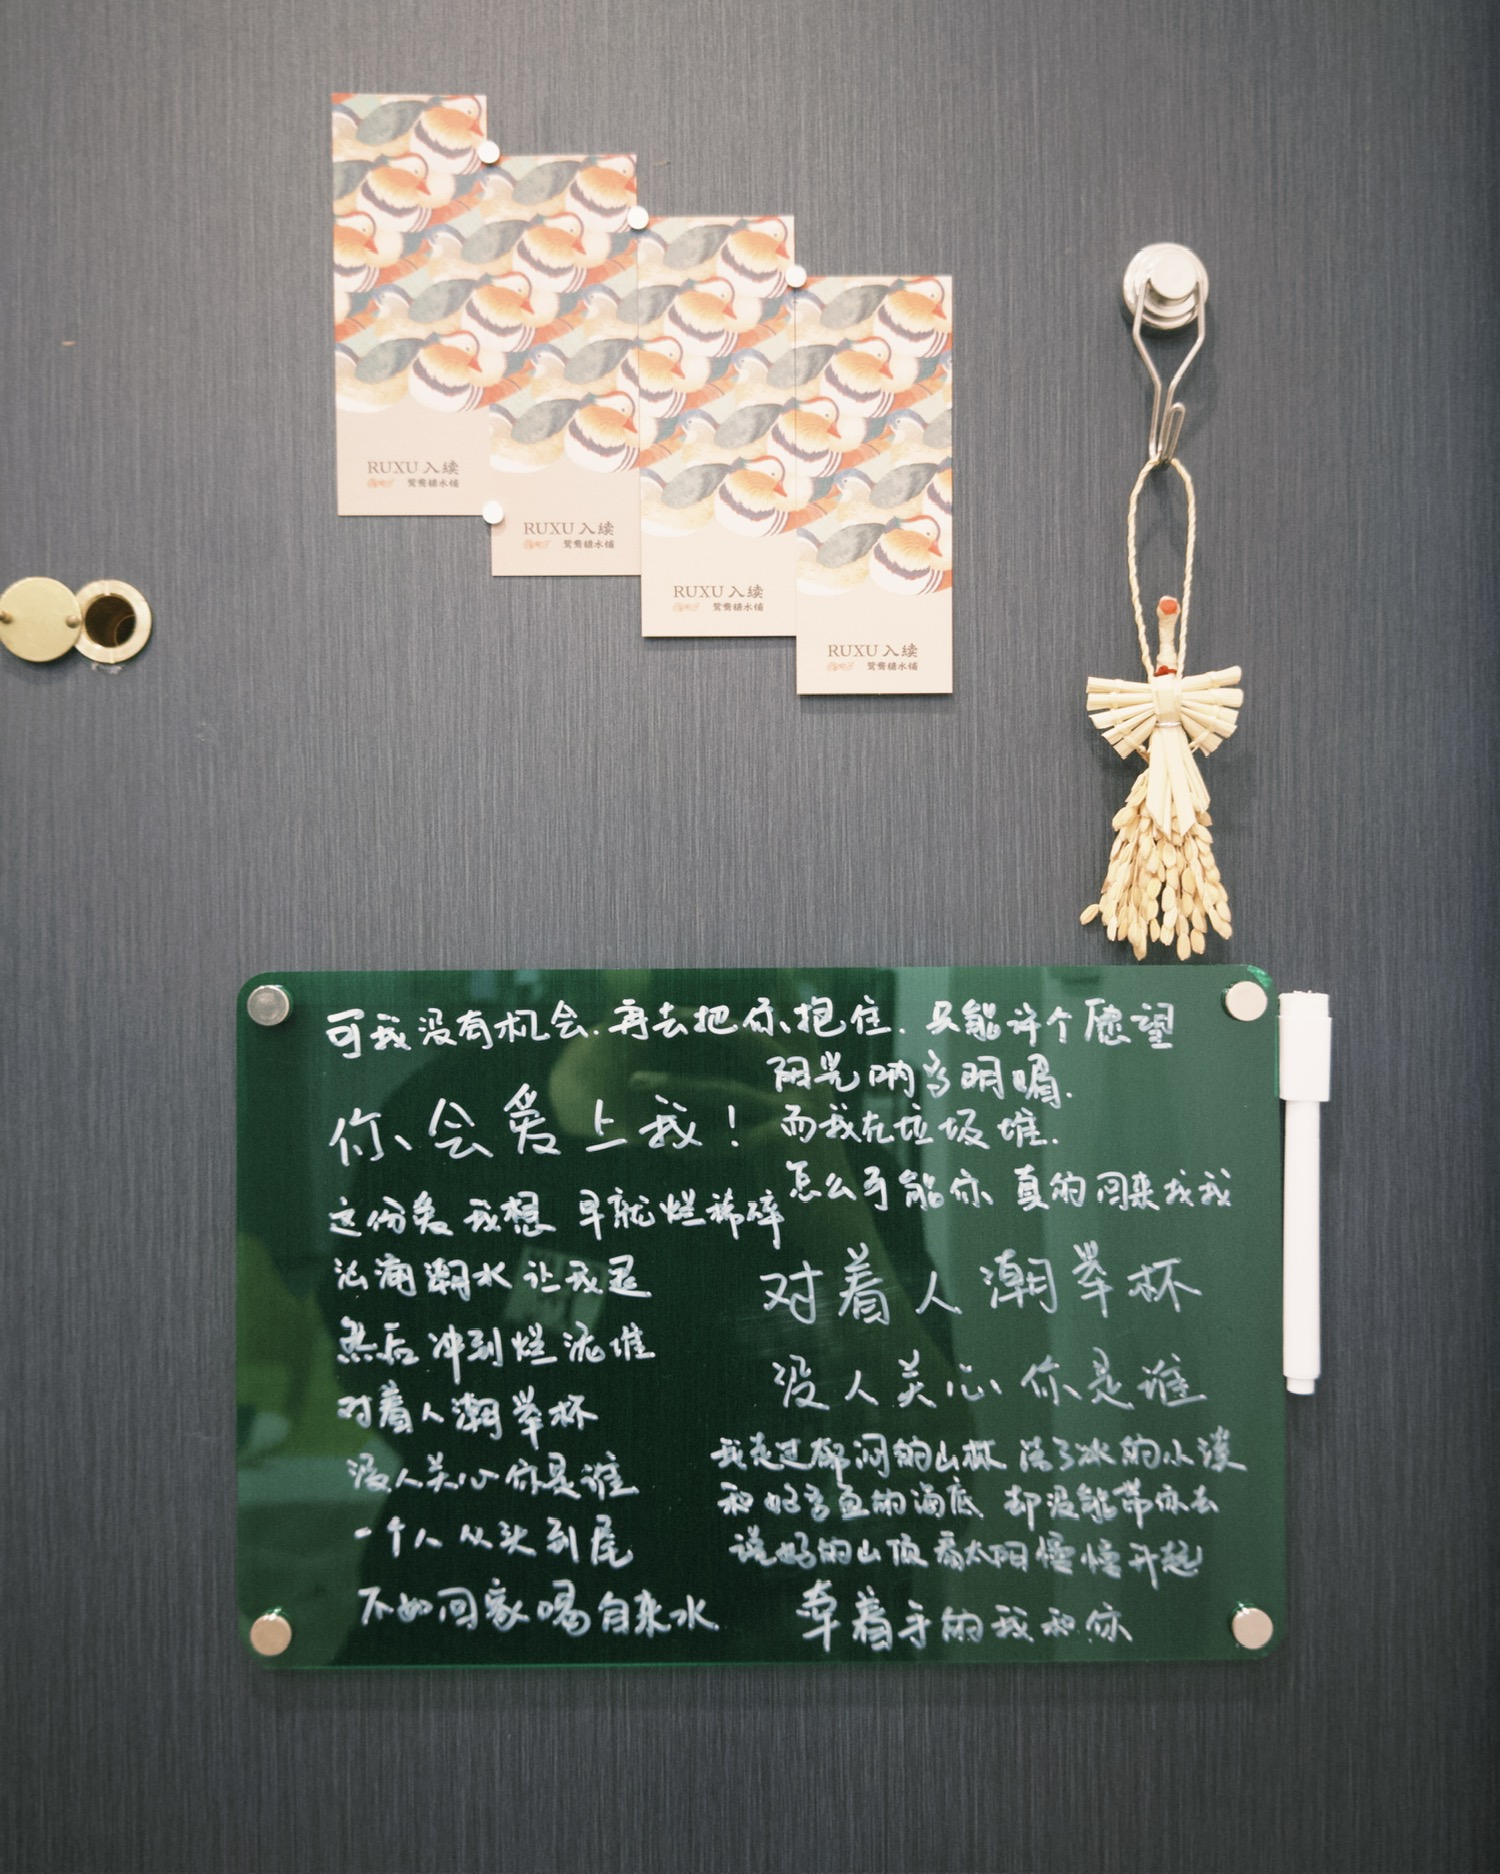 RUXU 入续
鸳鸯糖水铺
RUXU 入续
鸳鸯糖水铺
RUXU 入续
鸳鸯糖水铺
RUXU 入续
鸳鸯糖水铺
可我没有机会.再去把你抱住.只能许个愿望
你会爱上我!
这份爱 我想 早就烂稀碎
潮水 让我
然后 冲到烂泥堆
对着人潮举杯
没人关心你是谁
一个人从头到尾
不如回家喝自来水
阳光 明媚.
而我在垃圾堆.
怎么可能你 真的回来找我
对着人潮举杯
没人关心你是谁
我走过郁闷的山林 结了冰的小溪
和好多鱼的海底 却没能带你去
说好的山顶看太阳慢慢升起
牵着手的我和你